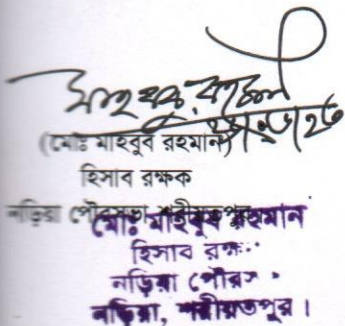 (মোঃ মাহবুব রহমান)
হিসাব রক্ষক
নড়িয়া পৌরসভা শরীয়তপুর
মোঃ মাহবুব রহমান
হিসাব রক্ষ
নড়িয়া পৌরস
নড়িয়া, শরীয়তপুর।